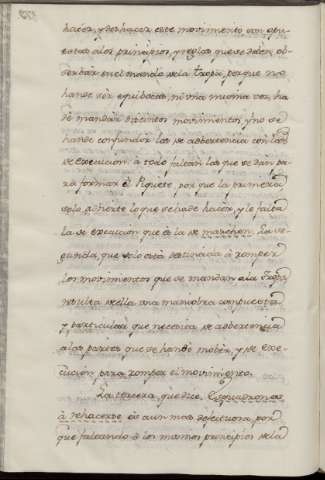 hacer, y deshacer este movimiento son opu
estas alos principios, y reglas que se deben ob-
serbar en el mando dela tropa, porque no
han de ser equibocas, ni una misma voz, ha
de mandar distintos movimientos y no se
han de confundir las de adbertencia con las
de execucion: à todo faltan las que se dan pa
ra formar el Piquete por que la primera
solo adbierte lo que se ha de hacer, y le falta
la de execucion que es la de marchen. La se-
gunda, que solo está destinada à romper
los movimientos que se mandan ala tropa,
resulta de ella una maniobra compuesta
y particular que necesita de adbertencia
alas partes que se han de mober, y de exe-
cucion para romper el movimiento.
La tercera, que dice, Esquadrones
à rehacerse es aun mas defectuosa, por
que faltando à los mismos principios dela